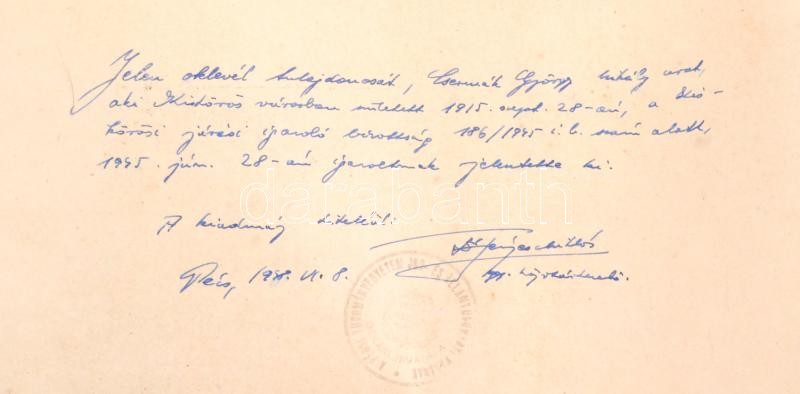 Jelen oklevél tulajdonosát, Csermák György Mihály urat,
aki Kiskőrös városban született 1915. szept. 28-án, a Kis-
kőrösi járási igazoló bizottság 186/1945 i.b. szám alatt,
1945. jún. 28-án igazoltnak jelentette ki.
A kiadmány hiteléül:
Pécs, 1948. VI. 8.
darabanth